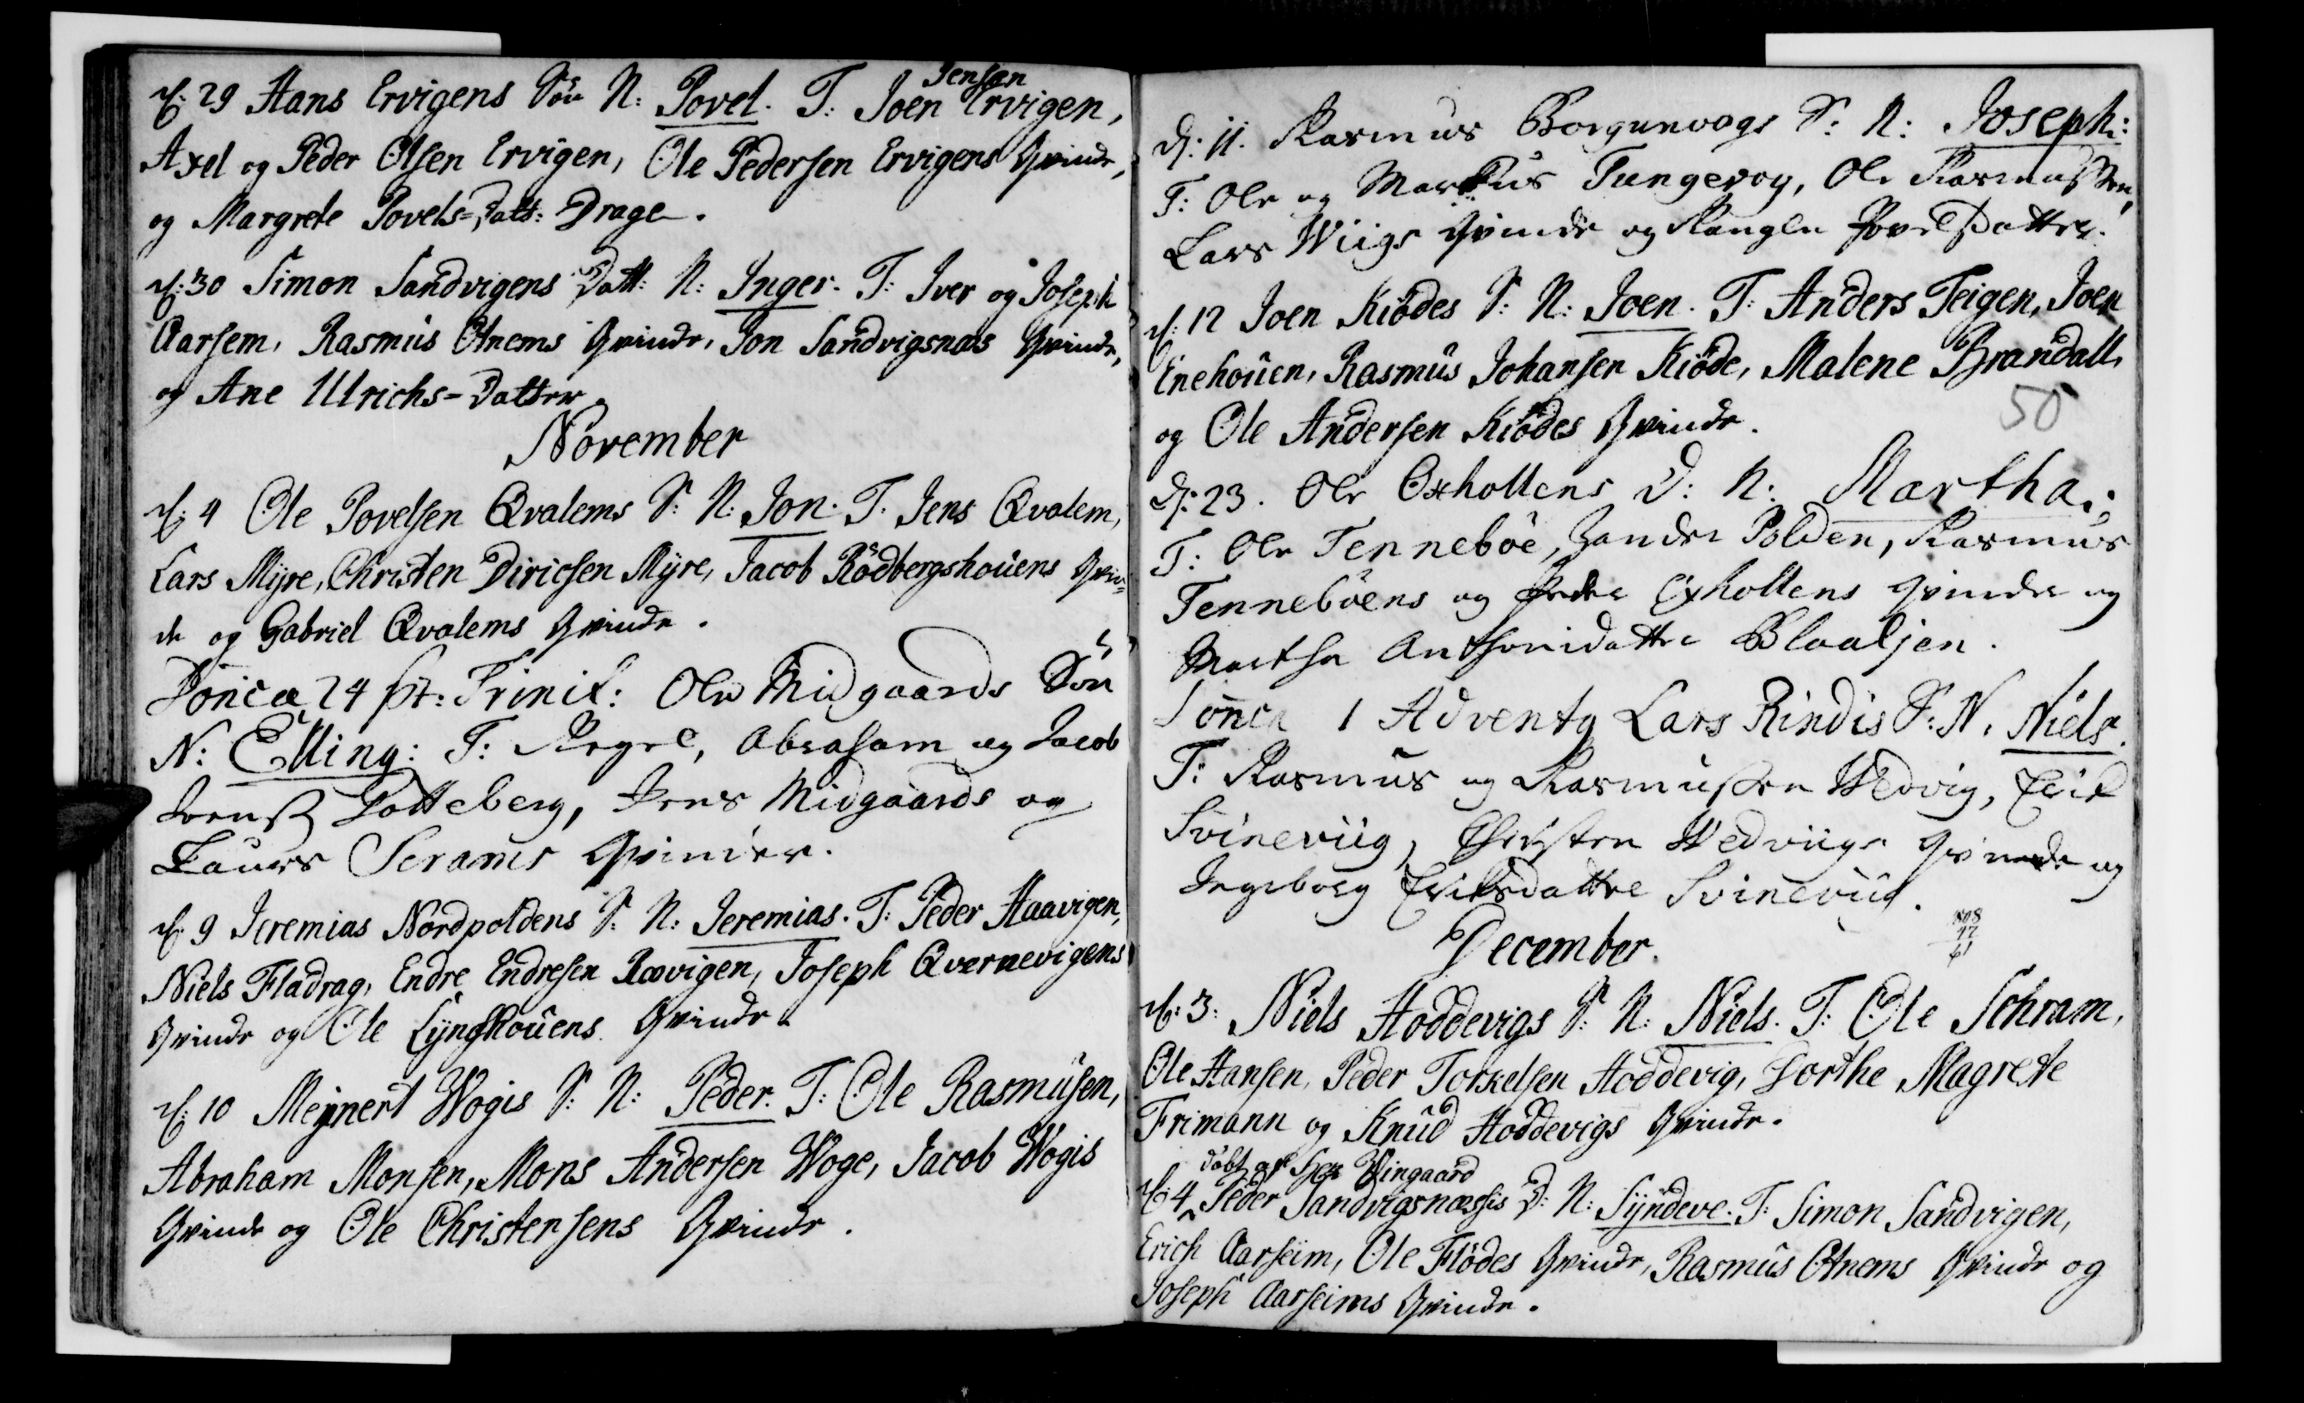 d: 29 Hans Ervigens Søn N: Povel. T: Joen Jensen Ervigen,
Axel og Peder Olsen Ervigen, Ole Pedersen Ervigens Qvinde,
og Margrete Povels-Datt: Drage.
d: 30 Simon Sandvigens Datt: N: Inger. T: Iver og Joseph
Aarsem, Rasmus Otnems Qvinde, Jon Sandvigsnæs Qvinde,
og Ane Ulrichs-Datter.
November
d: 4 Ole Povelsen Qvalems S: N: Jon. T: Jens Qvalem,
Lars Myre, Christen Diricsen Myre, Jacob Rødbergshouens Qvin-
de og Gabriel Qvalems Qvinde.
Donica 24 pt: Trinit: Ole Midgaards Søn
N: Elling: T: Abraham og Jacob
Jens Midgaards og
Laurs Scrams Qvinder.
d: 9 Jeremias Nordpoldens S: N: Jeremias. T: Peder Haavigen,
Niels Fladrag, Endre Endresen Rævigen, Joseph Qvernevigens
Qvinde og Ole Lynghouens Qvinde.
d: 10 Meynert Wogis S: N: Peder. T: Ole Rasmusen,
Abraham Monsen, Mons Andersen Woge, Jacob Wogis
Qvinde og Ole Christensens Qvinde.
d: 11. Rasmus Borgunvogs S: N: Joseph:
T: Ole og Markus Tungevog, Ole Rasmussen,
Lars Wiigs Qvinde og Povelsdatter.
d: 12 Joen Kiødes S: N: Joen. T: Anders Teigen, Joen
Enehouen, Rasmus Johansen Kiøde, Malene Brandall,
og Ole Andersen Kiødes Qvinde.
50
d: 23. Ole Oxholtens D: N: Martha:
T: Ole Tennebøe, Sander Polden, Rasmus
Tennebøens og Peder Oxholtens Qvinder og
Martha Anthonidatter Blaaljen.
Donica 1 Adventq Lars Rindis S: N. Niels.
T: Rasmus og Rasmussen Wedvig, Erik
Svineviig, Christen Wedviigs Qvinde og
Ingeborg Eriksdatter Svineviig.
17
61
December.
d: 3. Niels Hoddevigs S: N: Niels. T: Ole Schram,
Ole Hansen, Peder Torkelsen Hoddevig, Dorthe Magrete
Frimann og Knud Hoddevigs Qvinde.
døbt af Hr Wingaard
d: 4 Peder Sandvigsnæssis D: N: Syndeve. T: Simon Sandvigen,
Erich Aarseim, Ole Flødes Qvinde, Rasmus Otnems Qvinde og
Joseph Aarseims Qvinde.